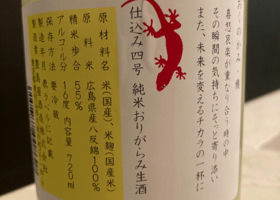 喜怒哀楽が重なり合う時の中
その瞬間の気持ちにそっと寄り添い
また、未来を変えるチカラの一杯に
仕込み四号 純米おりがらみ生酒
原材料名 米(国産米)、米麹(国産米)
原料米 広島県産八反錦100%
精米歩合 55%
アルコール分 16度 内容量 720ml
保存方法 要冷蔵